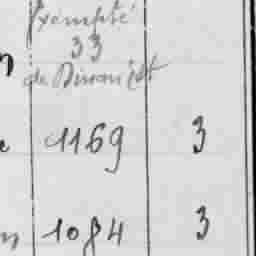 Exempté
33
n
de Dinan Est
e 1169 3
n 1084 3